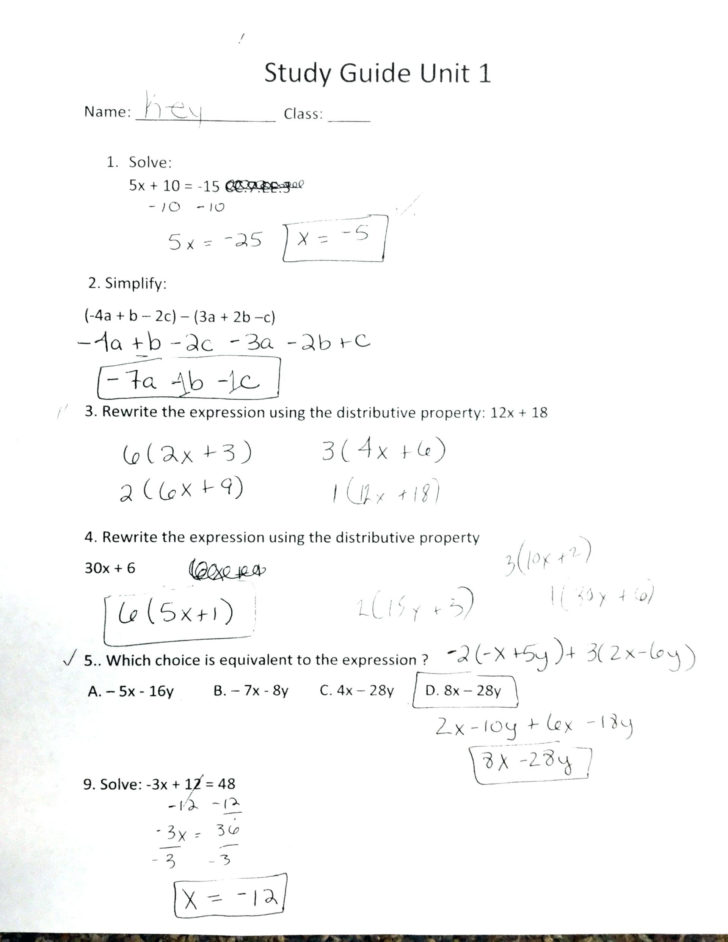 Study Guide Unit 1
Name: hey Class:
1. Solve:
5x + 10 = -15
-10 -10
5x = -25 x = -5
2. Simplify:
(-4a + b – 2c) – (3a + 2b –c)
-4a + b - 2c - 3a - 2b + c
-7a -1b -1c
3. Rewrite the expression using the distributive property: 12x + 18
6(2x + 3) 3(4x + 6)
2(6x + 9) 1(12x + 18)
4. Rewrite the expression using the distributive property
30x + 6 3(10x + 2)
6(5x+1) 2(15x + 3) 1(30x + 6)
✓ 5.. Which choice is equivalent to the expression ? -2(-x + 5y) + 3(2x - 6y)
A. – 5x - 16y B. – 7x - 8y C. 4x – 28y D. 8x – 28y
2x - 10y + 6x - 18y
8x - 28y
9. Solve: -3x + 12 = 48
-12 -12
-3x = 36
-3 -3
x = -12